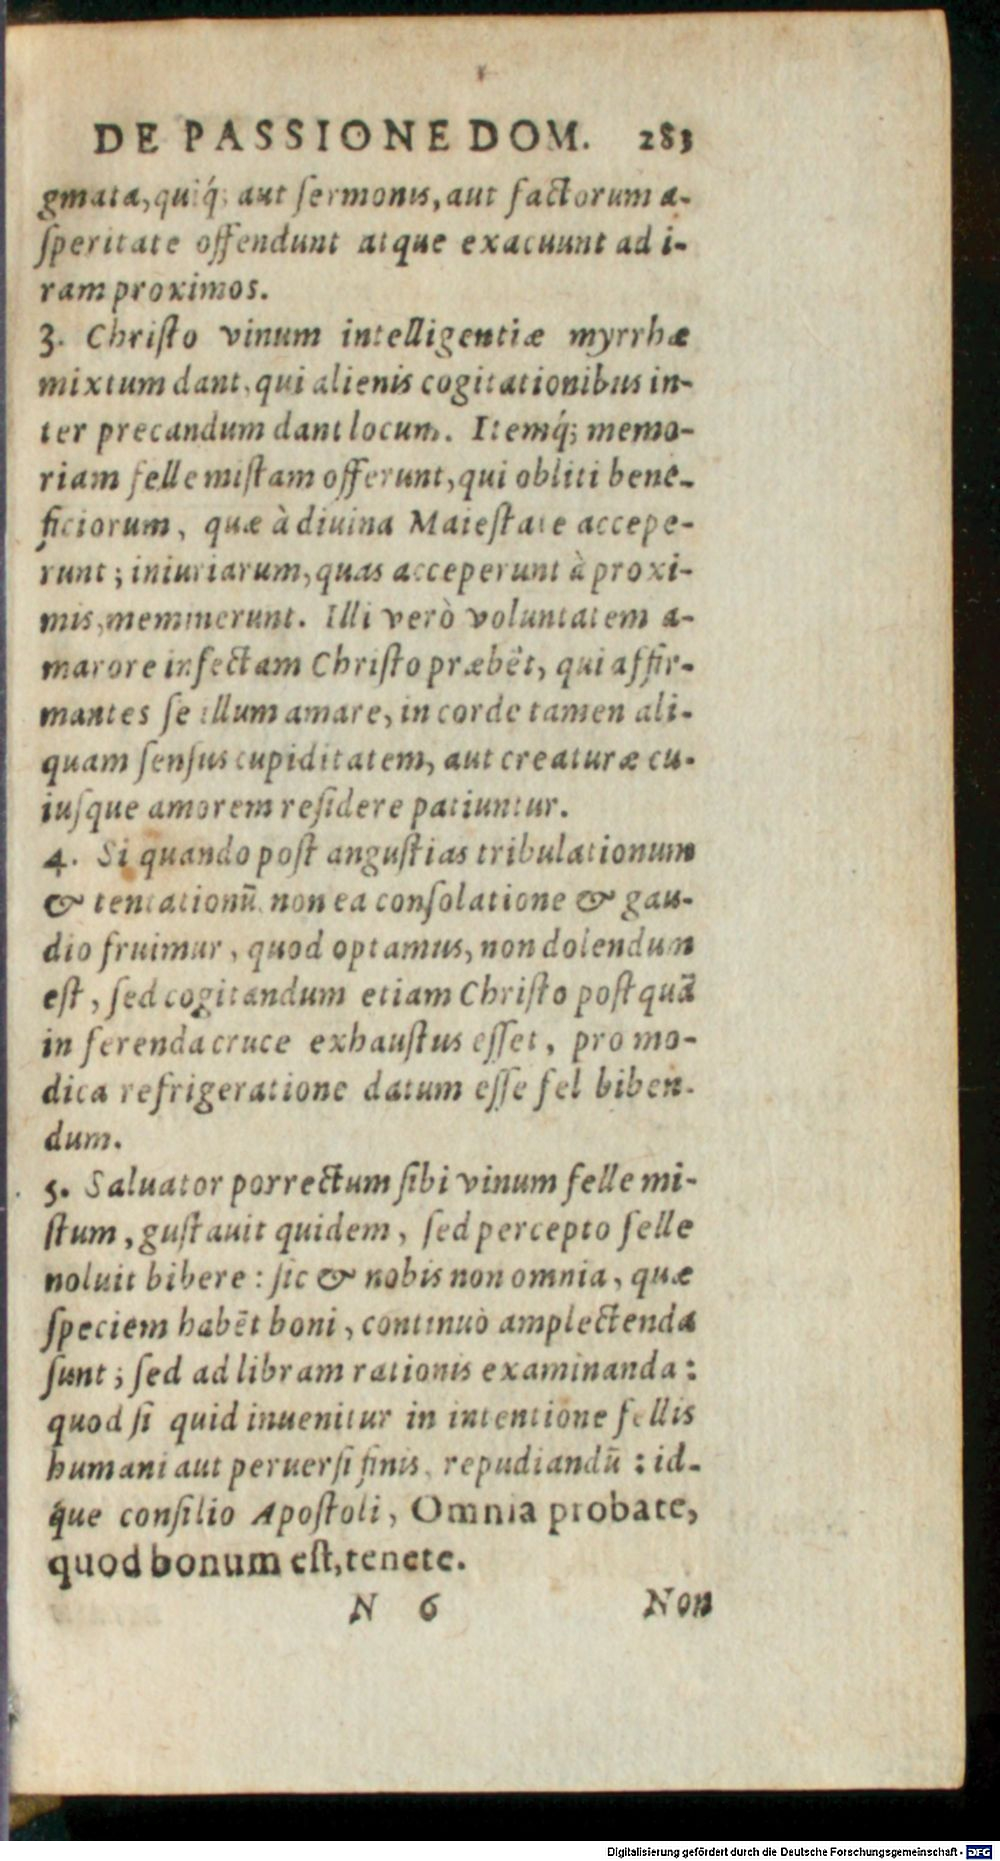 DE PASSIONE DOM. 283
gmata, quiq́; aut ſermonis, aut factorum a-
ſperitate offendunt atque exacuunt ad i-
ram proximos.
3. Chriſto vinum intelligentiæ myrrhæ
mixtum dant, qui alienis cogitationibus in-
ter precandum dant locum. Itemq́; memo-
riam felle miſtam offerunt, qui obliti bene-
ficiorum, quæ à diuina Maieſtate accepe-
runt; iniuriarum, quas acceperunt à proxi-
mis, meminerunt. Illi verò voluntatem a-
marore infectam Chriſto præbēt, qui affir-
mantes ſe illum amare, in corde tamen ali-
quam ſenſus cupiditatem, aut creaturæ cu-
iuſque amorem reſidere patiuntur.
4. Si quando poſt anguſtias tribulationum
& tentationū non ea conſolatione & gau-
dio fruimur, quod optamus, non dolendum
eſt, ſed cogitandum etiam Chriſto poſtquā
in ferenda cruce exhauſtus eſſet, pro mo-
dica refrigeratione datum eſſe fel biben-
dum.
5. Saluator porrectum ſibi vinum felle mi-
ſtum, guſtauit quidem, ſed percepto felle
noluit bibere: ſic & nobis non omnia, quæ
ſpeciem habēt boni, continuò amplectenda
ſunt; ſed ad libram rationis examinanda:
quod ſi quid inuenitur in intentione fellis
humani aut peruerſi finis, repudiandū: id-
q́ue conſilio Apoſtoli, Omnia probate,
quod bonum eſt, tenete.
N 6 Non
Digitalisierung gefördert durch die Deutsche Forschungsgemeinschaft - DFG